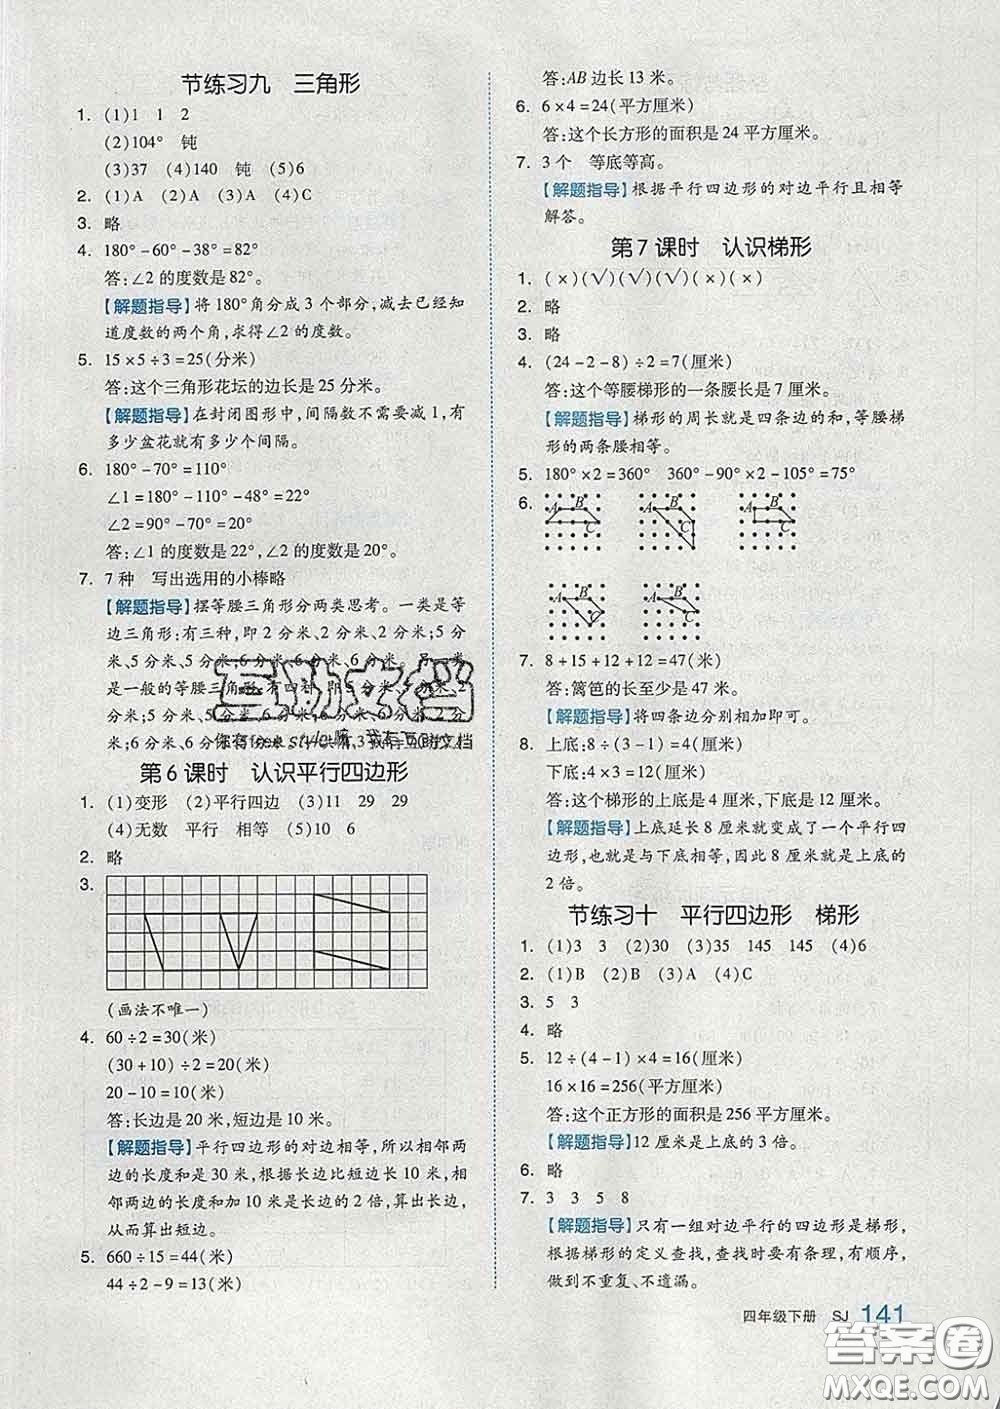 节练习九 三角形
1. (1)1 1 2
(2)104° 钝
(3)37 (4)140 钝 (5)6
2. (1)A (2)A (3)A (4)C
3. 略
4. 180°-60°-38°=82°
答:∠2的度数是82°。
【解题指导】将180°角分成3个部分,减去已经知
道度数的两个角,求得∠2的度数。
5. 15×5÷3=25(分米)
答:这个三角形花坛的边长是25分米。
【解题指导】在封闭图形中,间隔数不需要减1,有
多少盆花就有多少个间隔。
6. 180°-70°=110°
∠1=180°-110°-48°=22°
∠2=90°-70°=20°
答:∠1的度数是22°,∠2的度数是20°。
7. 7种 写出选用的小棒略
【解题指导】摆等腰三角形分两类思考。一类是等
边三角形:有三种,即2分米、2分米、2分米;5分
米、5分米、5分米;6分米、6分米、6分米。另一类
是一般的等腰三角形:有四种,即5分米、5分米、
2分米;5分米、5分米、6分米;6分米、6分米、
互助文档
你有
style嘛,我有互助文档
第6课时 认识平行四边形
1. (1)变形 (2)平行四边 (3)11 29 29
(4)无数 平行 相等 (5)10 6
2. 略
3.
(画法不唯一)
4. 60÷2=30(米)
(30+10)÷2=20(米)
20-10=10(米)
答:长边是20米,短边是10米。
【解题指导】平行四边形的对边相等,所以相邻两
边的长度和是30米,根据长边比短边长10米,相
邻两边的长度和加10米是长边的2倍,算出长边,
从而算出短边。
5. 660÷15=44(米)
44÷2-9=13(米)
答:AB边长13米。
6. 6×4=24(平方厘米)
答:这个长方形的面积是24平方厘米。
7. 3个 等底等高。
【解题指导】根据平行四边形的对边平行且相等
解答。
第7课时 认识梯形
1. (×)(√)(√)(√)(×)(×)
2. 略
3. 略
4. (24-2-8)÷2=7(厘米)
答:这个等腰梯形的一条腰长是7厘米。
【解题指导】梯形的周长就是四条边的和,等腰梯
形的两条腰相等。
5. 180°×2=360° 360°-90°×2-105°=75°
6. A B C A B C A B C
A B C A B C
7. 8+15+12+12=47(米)
答:篱笆的长至少是47米。
【解题指导】将四条边分别相加即可。
8. 上底:8÷(3-1)=4(厘米)
下底:4×3=12(厘米)
答:这个梯形的上底是4厘米,下底是12厘米。
【解题指导】上底延长8厘米就变成了一个平行四
边形,也就是与下底相等,因此8厘米是上底的
2倍。
节练习十 平行四边形 梯形
1. (1)3 3 (2)30 (3)35 145 145 (4)6
2. (1)B (2)B (3)A (4)C
3. 5 3
4. 略
5. 12÷(4-1)×4=16(厘米)
16×16=256(平方厘米)
答:这个正方形的面积是256平方厘米。
【解题指导】12厘米是上底的3倍。
6. 略
7. 3 3 5 8
【解题指导】只有一组对边平行的四边形是梯形,
根据梯形的定义查找,查找时要有条理,有顺序,
做到不重复、不遗漏。
四年级下册 SJ 141
答案圈
MXQE.COM